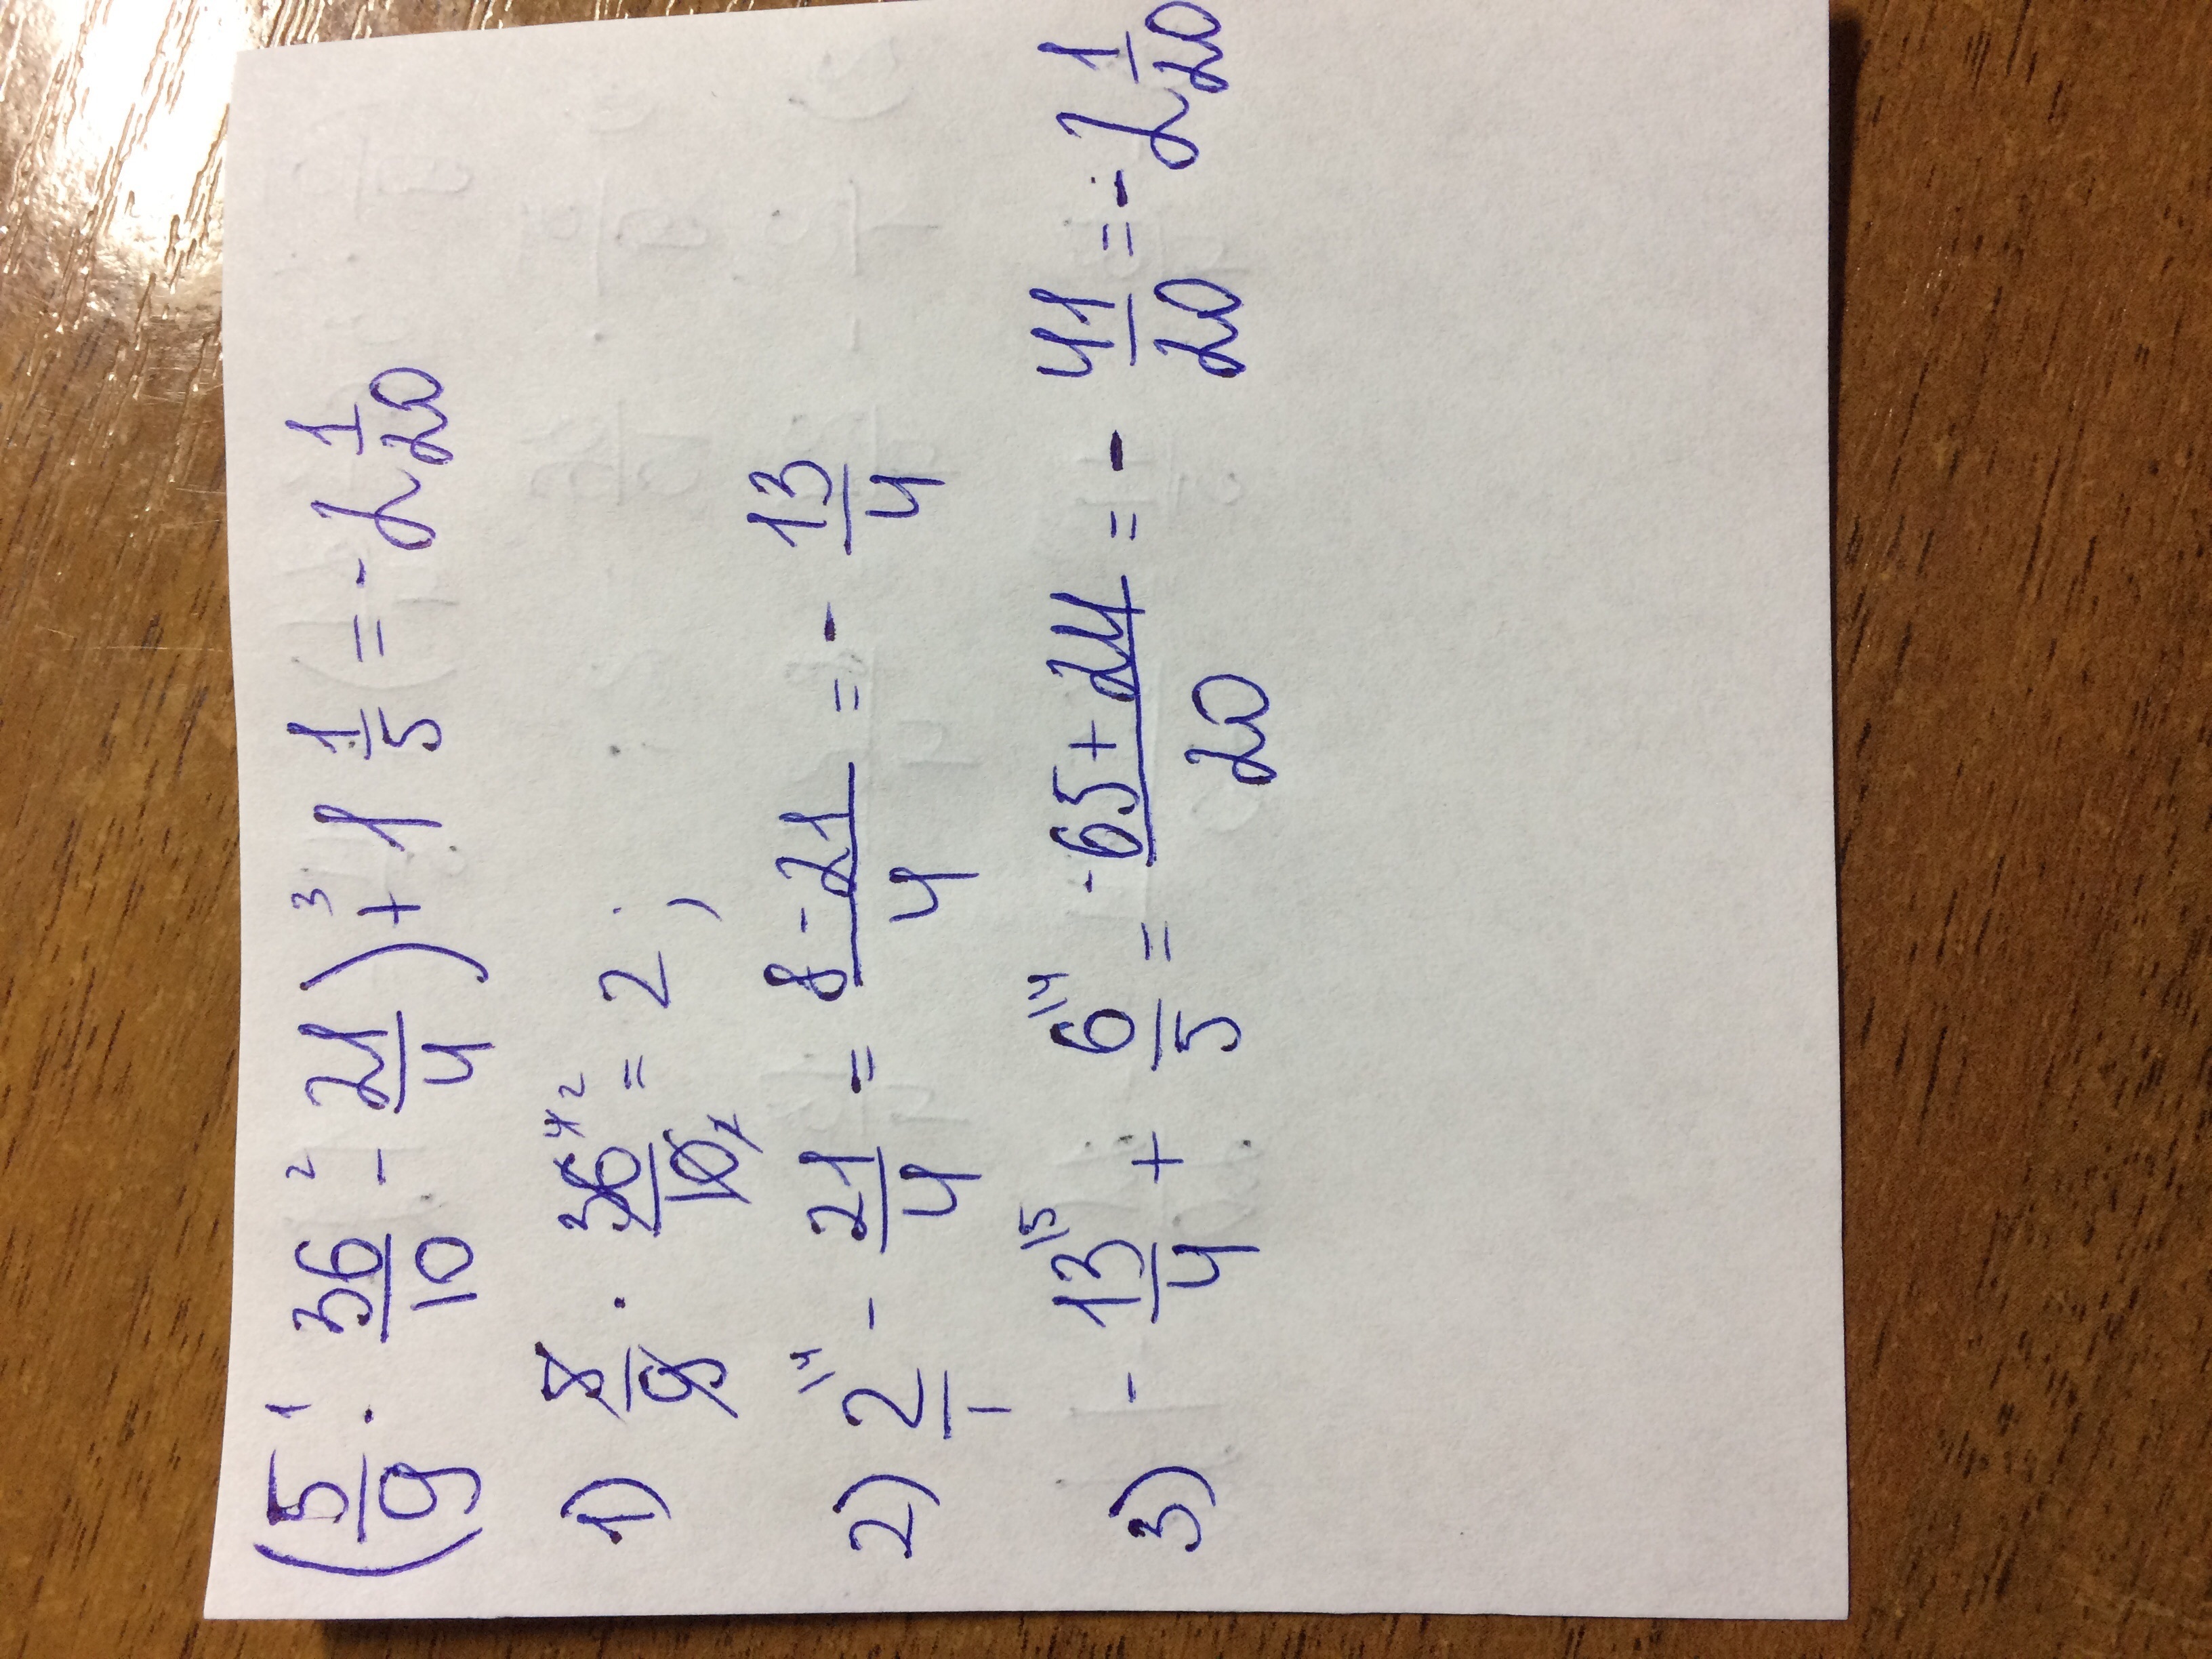 (5/9 ·¹ 36/10 -² 21/4) +³ 1 1/5 = - 2 1/20
1) 5/9 · 36⁴ ²/10₂ = 2 ;
2) 2^\4/1 - 21/4 = 8 - 21/4 = - 13/4
3) - 13^\5/4 + 6^\4/5 = -65 + 24/20 = - 41/20 = - 2 1/20